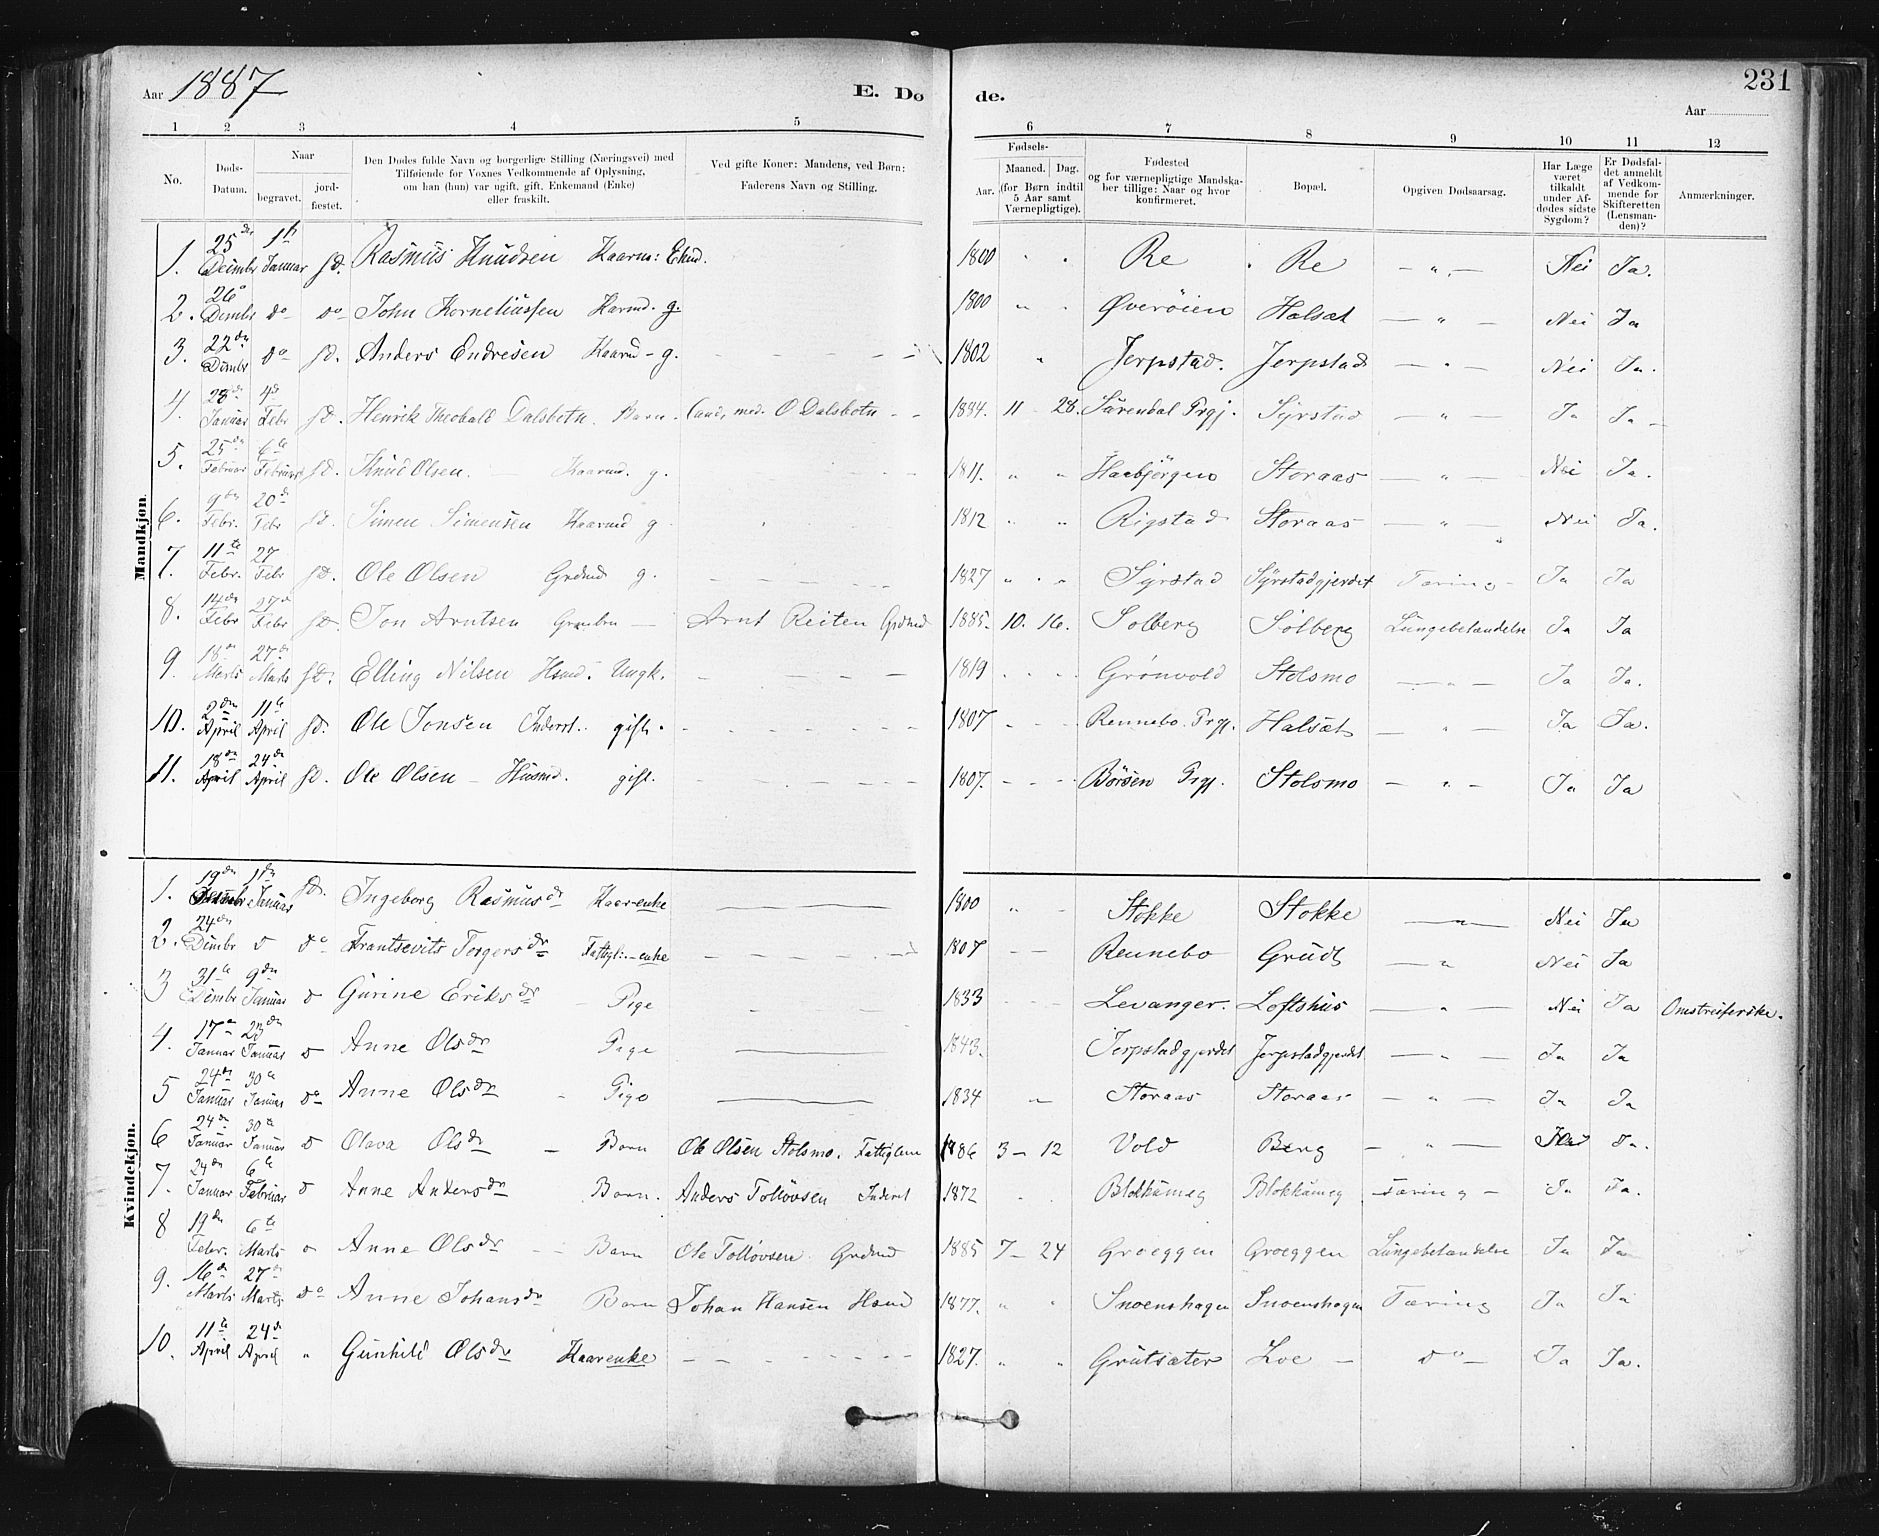 Aar 1887 E. Dø de. 231
Aar
1 2 3 4 5 6 7 8 9 10 11 12
No. Døds-Datum. Naar begravet. jordfæstet. Den Dødes fulde Navn og borgerlige Stilling (Næringsvei) med Tilføiende for Voxnes Vedkommende af Oplysning, om han (hun) var ugift, gift, Enkemand (Enke) eller fraskilt. Ved gifte Koner: Mandens, ved Børn: Faderens Navn og Stilling. Fødsels- Aar. Maaned. Dag. (for Børn indtil 5 Aar samt Værnepligtige). Fødested og for værnepligtige Mandskaber tillige: Naar og hvor konfirmeret. Bopæl. Opgiven Dødsaarsag. Har Læge været tilkaldt under Afdødes sidste Sygdom? Er Dødsfaldet anmeldt af Vedkommende for Skifteretten (Lensmanden)? Anmærkninger.
Mandkjøn.
1. 25 Decmbr 1 Januar Rasmus Knudsen Kaarm: Ekmd. 1800 Re Re — „ — Nei Ja.
2. 26 Dcmbr do do John Korneliussen Karmd. g. 1800 Øverøien Halsæt — „ — Nei Ja
3. 22de Dcmbr do Anders Endresen Kaarmd - g. 1802 Jerpstad. Jerpstad — „ — Nei Ja.
4. 28de Januar 4de Febr Henrik Theobald Dalsbotn. Barn. Cand. med. O Dalsbotn 1884. 11 28. Surendal Prgj. Syrstad — „ — Ja Ja
5. 25de Februar 6te Februar Knud Olsen. Kaarmd. g. 1811. Haabjørgen Storaas — „ — Nei Ja.
6. 9de Febr. 20de Febr Simen Simensen Kaarmd g. 1812 Rigstad Storaas — „ — Nei Ja.
7. 11te Febr. 27 Febr Ole Olsen Grdmd g. 1827 Syrstad Syrstadgjerdet Tæring Ja Ja
8. 14de Febr 27de Febr Jon Arntsen — Arnt Reiten Grdmd 1885. 10. 16. Solberg Solberg Lungebetændelse Ja Ja
9. 18de Marts 27de Marts Elling Nilsen Hsmd. Ungk. 1819 Grønvold Stolsmo — „ — Ja Ja.
10. 2den April 11te April Ole Jonsen Inderst. gift. 1807 Rennebo Prgj. Halsæt — „ — Ja Ja.
11. 18de April 24de April Ole Olsen - Husmd. gift. 1807. Børsen Prgj. Stolsmo — „ — Ja Ja
Kvindekjøn.
1. 19de 1de Januar Ingeborg Rasmusdr Kaarenke 1800 Stokke Stokke — „ — Nei Ja
2. 24de Dcmbr do do Frantsevits Torgersdr Fattigl: - enke 1807 Rennebo Grudt — „ Nei Ja
3 31te Dcmbr 9de Januar Gurine Eriksdr - Pige 1833 Levanger. Loftshus — „ — Nei Ja Omstreiferske.
4. 17de Januar 23de Januar Anne Olsdr Pige 1843. Jerpstadgjerdet Jerpstadgjerdet. — „ — Ja Ja
5 24de Januar 30te Januar do Anne Olsdr - Pige 1834 Storaas Storaas — „ — Ja Ja
6 24de Januar 30te Januar Olava Olsdr - Barn Ole Olsen Stolsmo. Fattiglem 1886 3 - 12 Vold Berg — „ — Ja.
7. 24de Januar 6te Februar Anne Andersdr Barn. Anders Tolløvsen Inderst 1872 Blokkumeg Blokkumeg Tæring — Ja Ja.
8 19de Febr. 6te Marts Anne Olsdr - Barn Ole Tolløvsen. Grdmd 1885 7 - 24 Groeggen Groeggen Lungebetændelse Ja Ja
9. 16de Marts 27de Marts do Anne Johansdr Barn Johan Hansen Hsmd 1877. Snoenshagen Snoenshagen Tæring Ja Ja
10. 11te April 24de April „ Gunhild Olsdr Kaarenke 1827. Grutsæter Loe — do — Ja Ja.